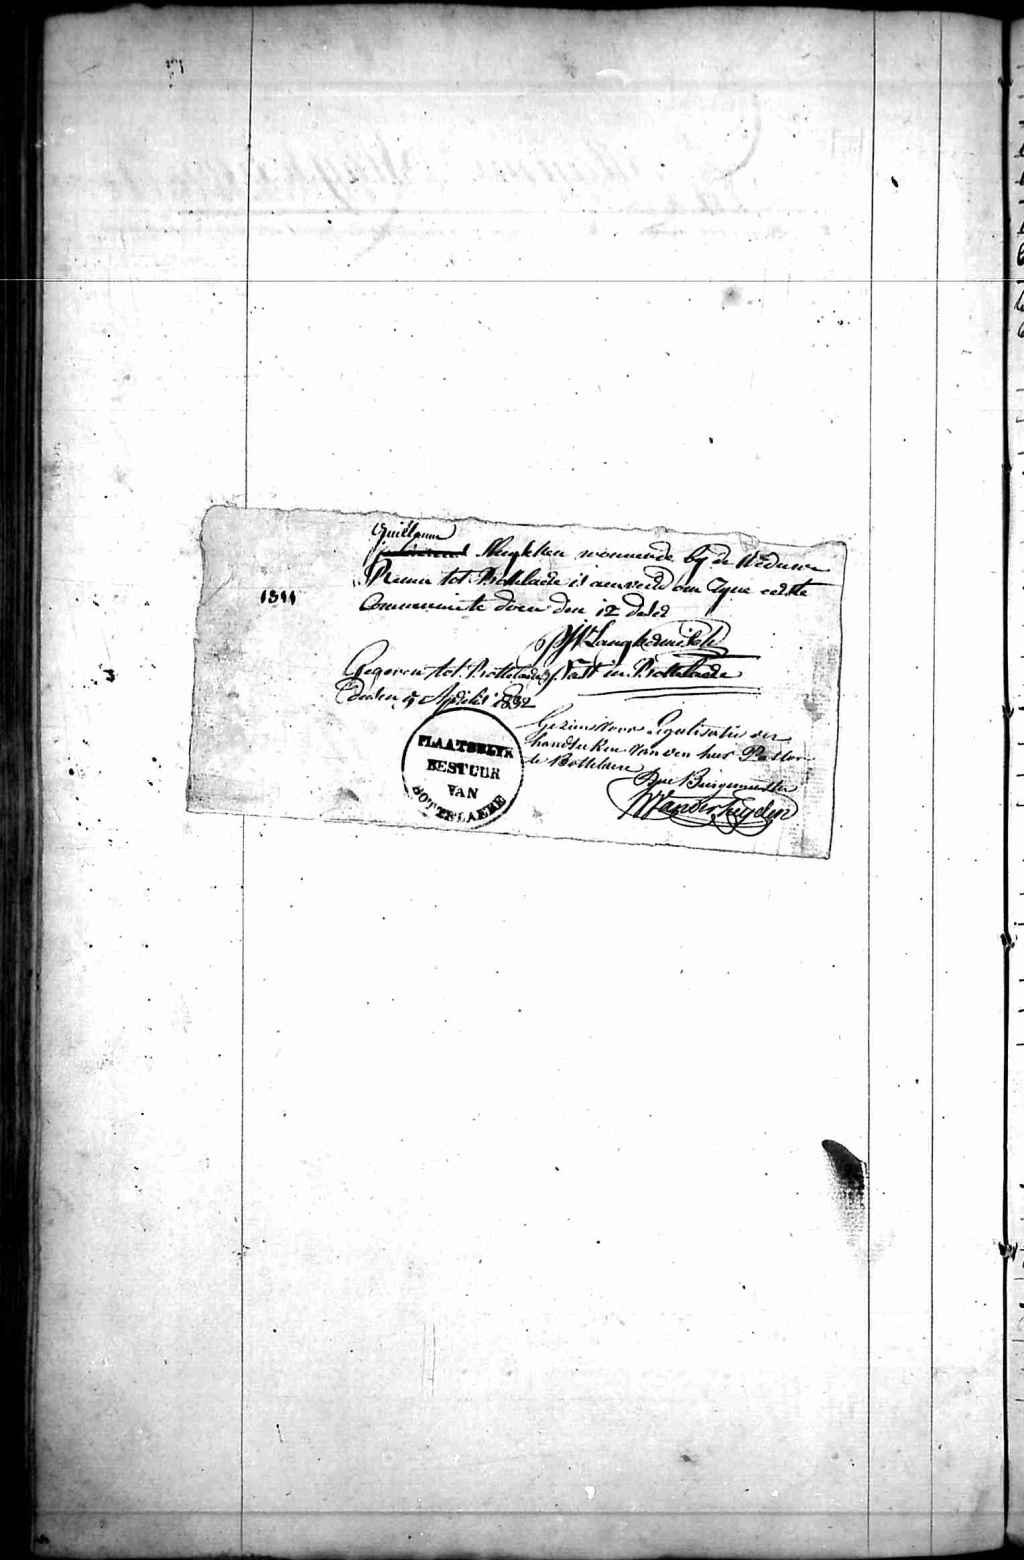 Guillaume
Huyghen woonende by de Weduwe
tot Bottelaere is aenveerd om Zyne eerste
1811
Communie te doen den 12 deser
Gegeven tot Bottelaere
Past. in Bottelaere
den 5 April 1832
Gezien voor Legalisatie der
handteeken van den heer Pastor
te Bottelaere
Den Burgemeester
Vanderheyden
PLAATSELYK
BESTUUR
VAN
BOTTELAERE